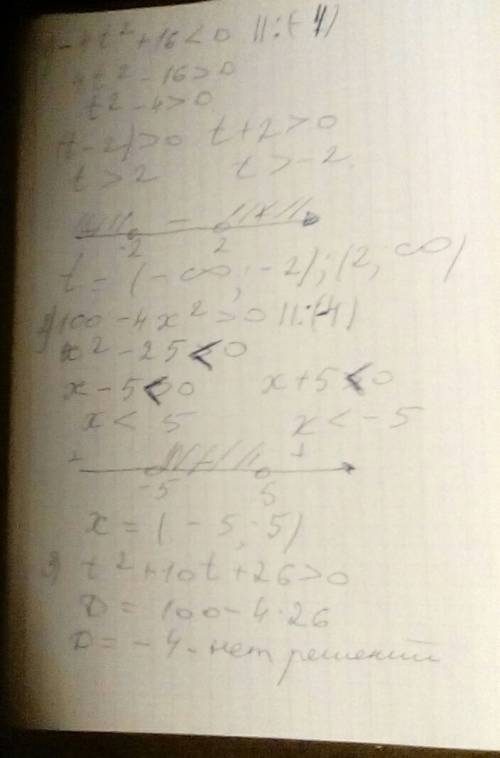 -4t² + 16 < 0 ||:(-4)
4t² - 16 > 0
t² - 4 > 0
(t - 2) > 0 t + 2 > 0
t > 2 t > -2
-2 - 2
t = (-∞; -2); (2, ∞)
2) 100 - 4x² > 0 ||:(4)
x² - 25 < 0
x - 5 < 0 x + 5 < 0
x < 5 x < -5
+ +
-5 5
x = (-5; 5)
3) t² + 10t + 26 > 0
D = 100 - 4·26
D = -4 - нет решений